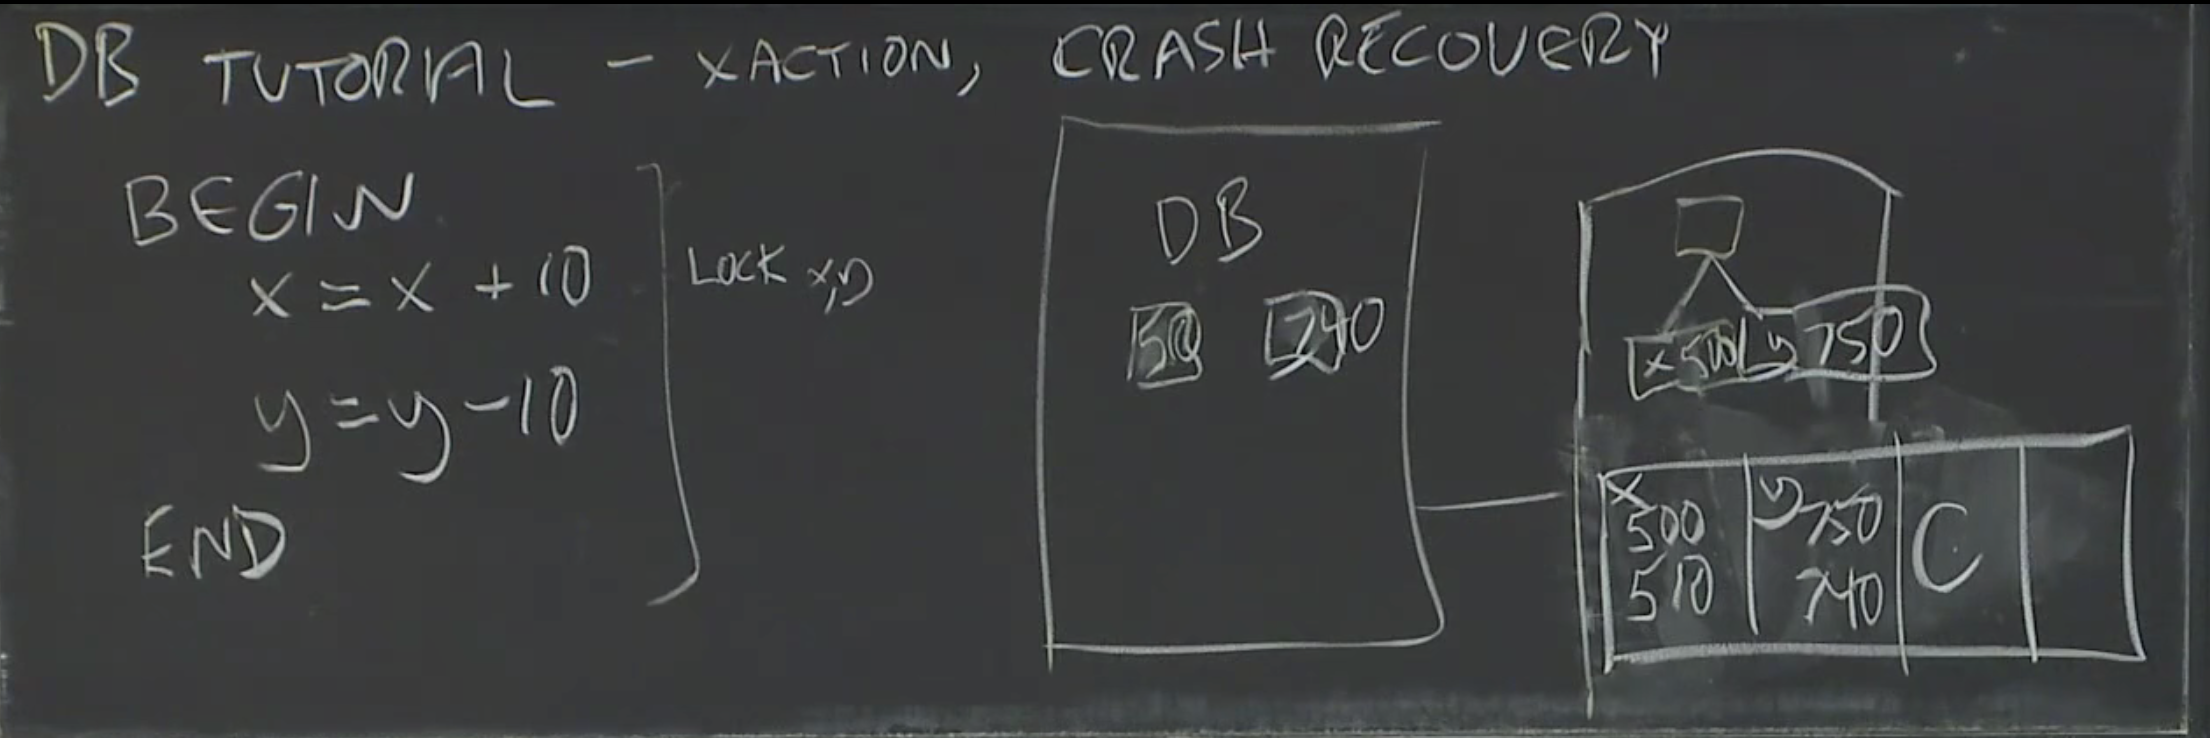 DB TUTORIAL - XACTION, CRASH RECOVERY
BEGIN
x = x + 10
y = y - 10
END
LOCK x, y
DB
510 740
x 500 y 750
x 500 510
y 750 740
C